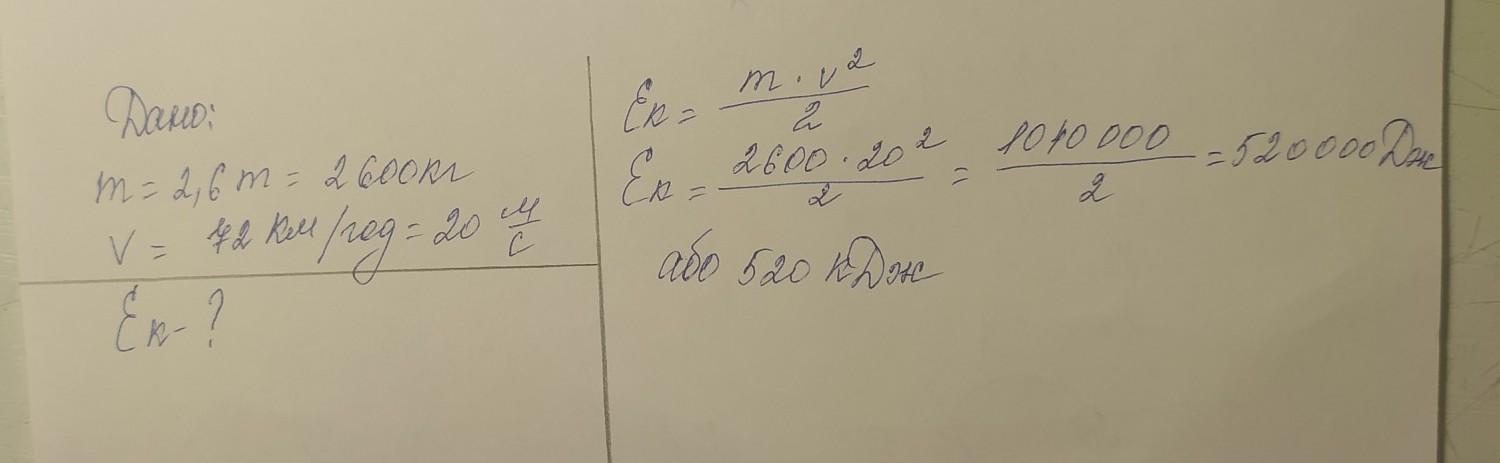 Дано:
m = 2,6 т = 2600кг
V = 72 км/год = 20 м/с
Ек - ?
Ек = m · v² / 2
Ек = 2600 · 20² / 2 = 1040 000 / 2 = 520000 Дж
або 520 кДж